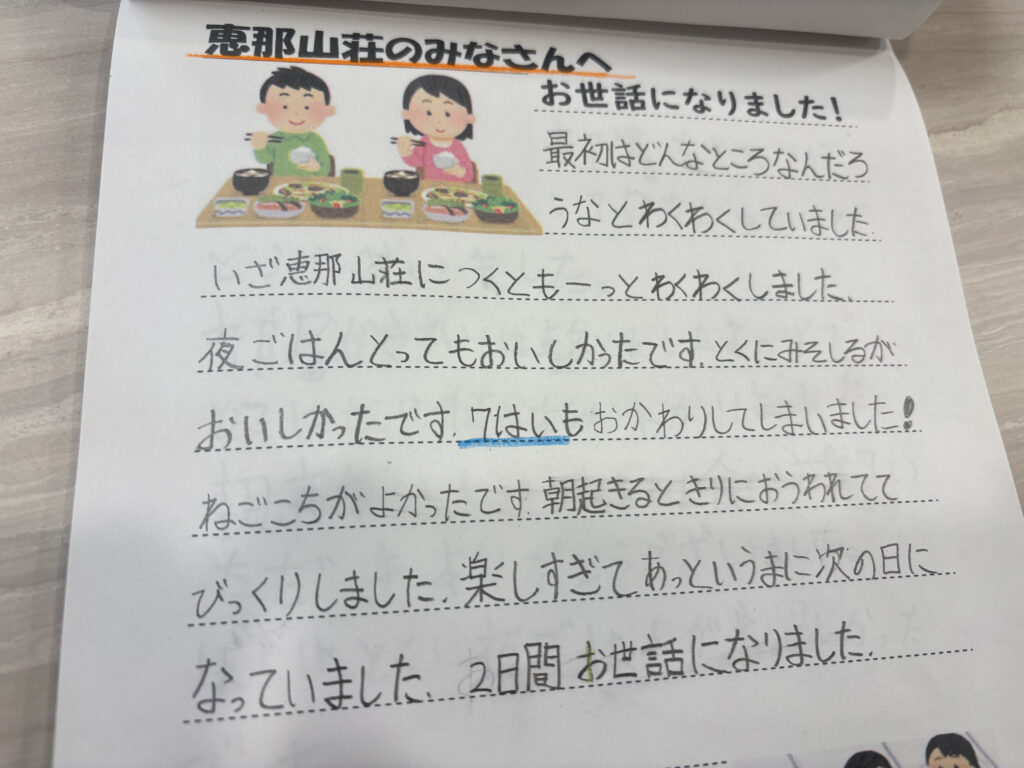 恵那山荘のみなさんへ
お世話になりました!
最初はどんなところなんだろ
うなとわくわくしていました.
いざ恵那山荘につくともーっとわくわくしました.
夜ごはんとってもおいしかったです.とくにみそしるが
おいしかったです.7はいもおかわりしてしまいました!
ねごこちがよかったです.朝起きるときりにおうわれてて
びっくりしました.楽しすぎてあっというまに次の日に
なっていました.2日間お世話になりました.